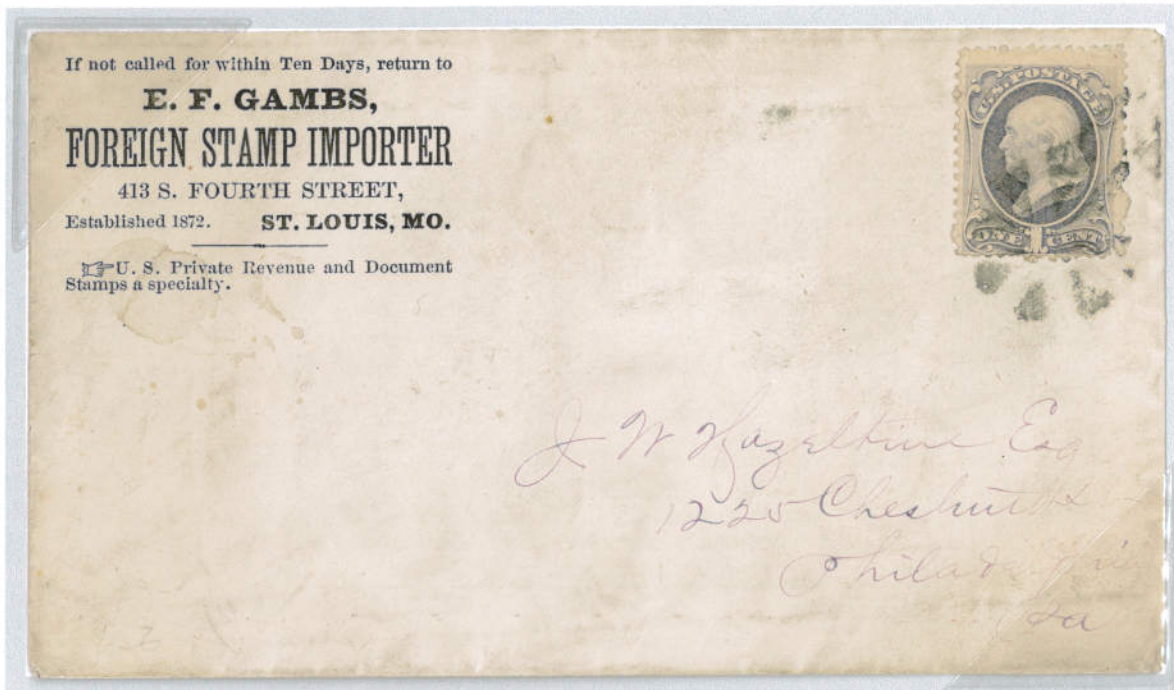 If not called for within Ten Days, return to
E. F. GAMBS,
FOREIGN STAMP IMPORTER
413 S. FOURTH STREET,
Established 1872. ST. LOUIS, MO.
☞U. S. Private Revenue and Document
Stamps a specialty.
U.S. POSTAGE
ONE 1 CENT
J W Hazeltine Esq
1225 Chestnut St
Philadelphia
Pa